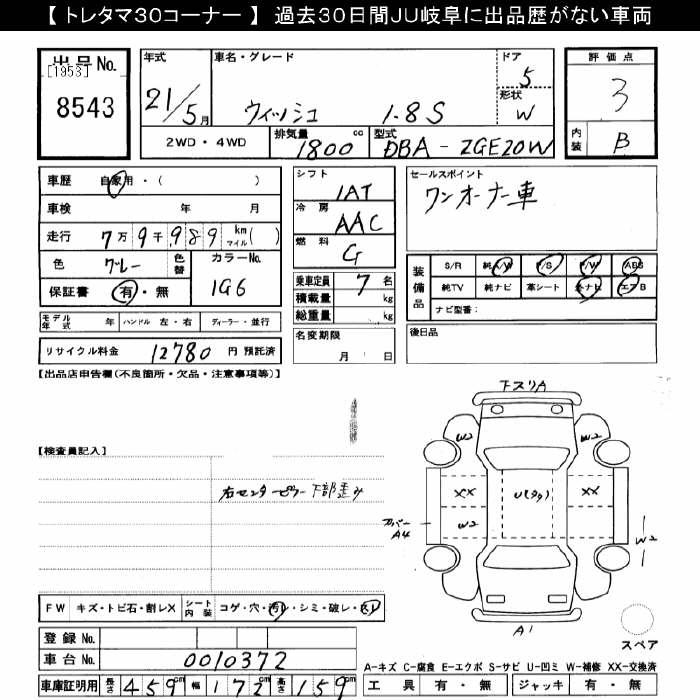 【 トレタマ30コーナー 】 過去30日間JU岐阜に出品歴がない車両
出品No.
[1953]
8543
年式
21/5月
車名・グレード
ウィッシュ 1.8S
ドア
5
形状
W
評価点
3
内装
B
2WD・4WD
排気量
1800 cc
型式
DBA - ZGE20W
車歴 自家用・( )
車検 年 月
走行 7万9千989 km マイル( )
色 グレー
色替
カラーNo.
1G6
保証書 有・無
シフト
1AT
冷房
AAC
燃料
G
乗車定員 7 名
積載量 kg
総重量 kg
セールスポイント
ワンオーナー車
装備品
S/R 純A/W P/S P/W ABS
純TV 純ナビ 革シート エアB
ナビ型番:
モデル年式 年 ハンドル 左・右 ディーラー・並行
リサイクル料金 12780 円 預託済
名変期限
月 日
後日品
【出品店申告欄(不良箇所・欠品・注意事項等)】
【検査員記入】
右センターピラー下部歪み
下スリA
W2 W2
XX U(タタ) XX
カバーA4
W2
W2
A1
スペア
FW キズ・トビ石・割レX
シート内装 コゲ・穴・汚レ・シミ・破レ・スレ
登録No.
車台No. 0010372
車庫証明用 長さ 459cm 幅 172cm 高さ 159cm
A-キズ C-腐食 E-エクボ S-サビ U-凹ミ W-補修 XX-交換済
工具 有・無 ジャッキ 有・無